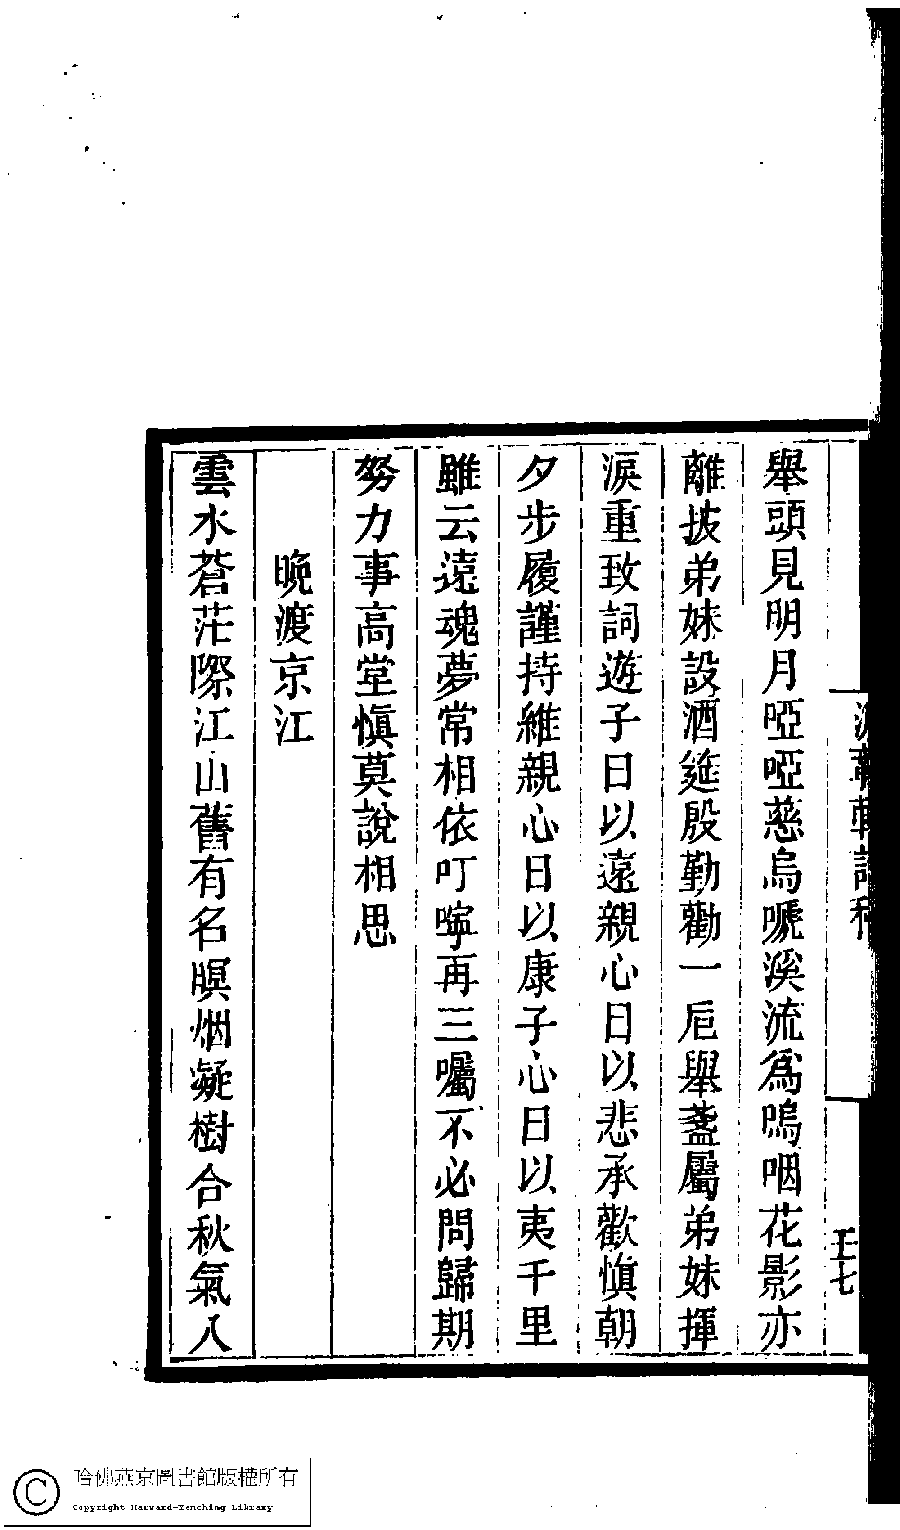 舉頭見明月啞啞慈烏嗁溪流爲嗚咽花影亦
離披弟妹設酒筵殷勤勸一卮舉盞屬弟妹揮
淚重致詞遊子日以遠親心日以悲承歡慎朝
夕步履謹持維親心日以康子心日以夷千里
雖云遠魂夢常相依叮嚀再三囑不必問歸期
努力事高堂慎莫說相思
晚渡京江
雲水蒼茫際江山舊有名暝烟凝樹合秋氣八
哈佛燕京圖書館版權所有
Copyright Harvard-Yenching Library